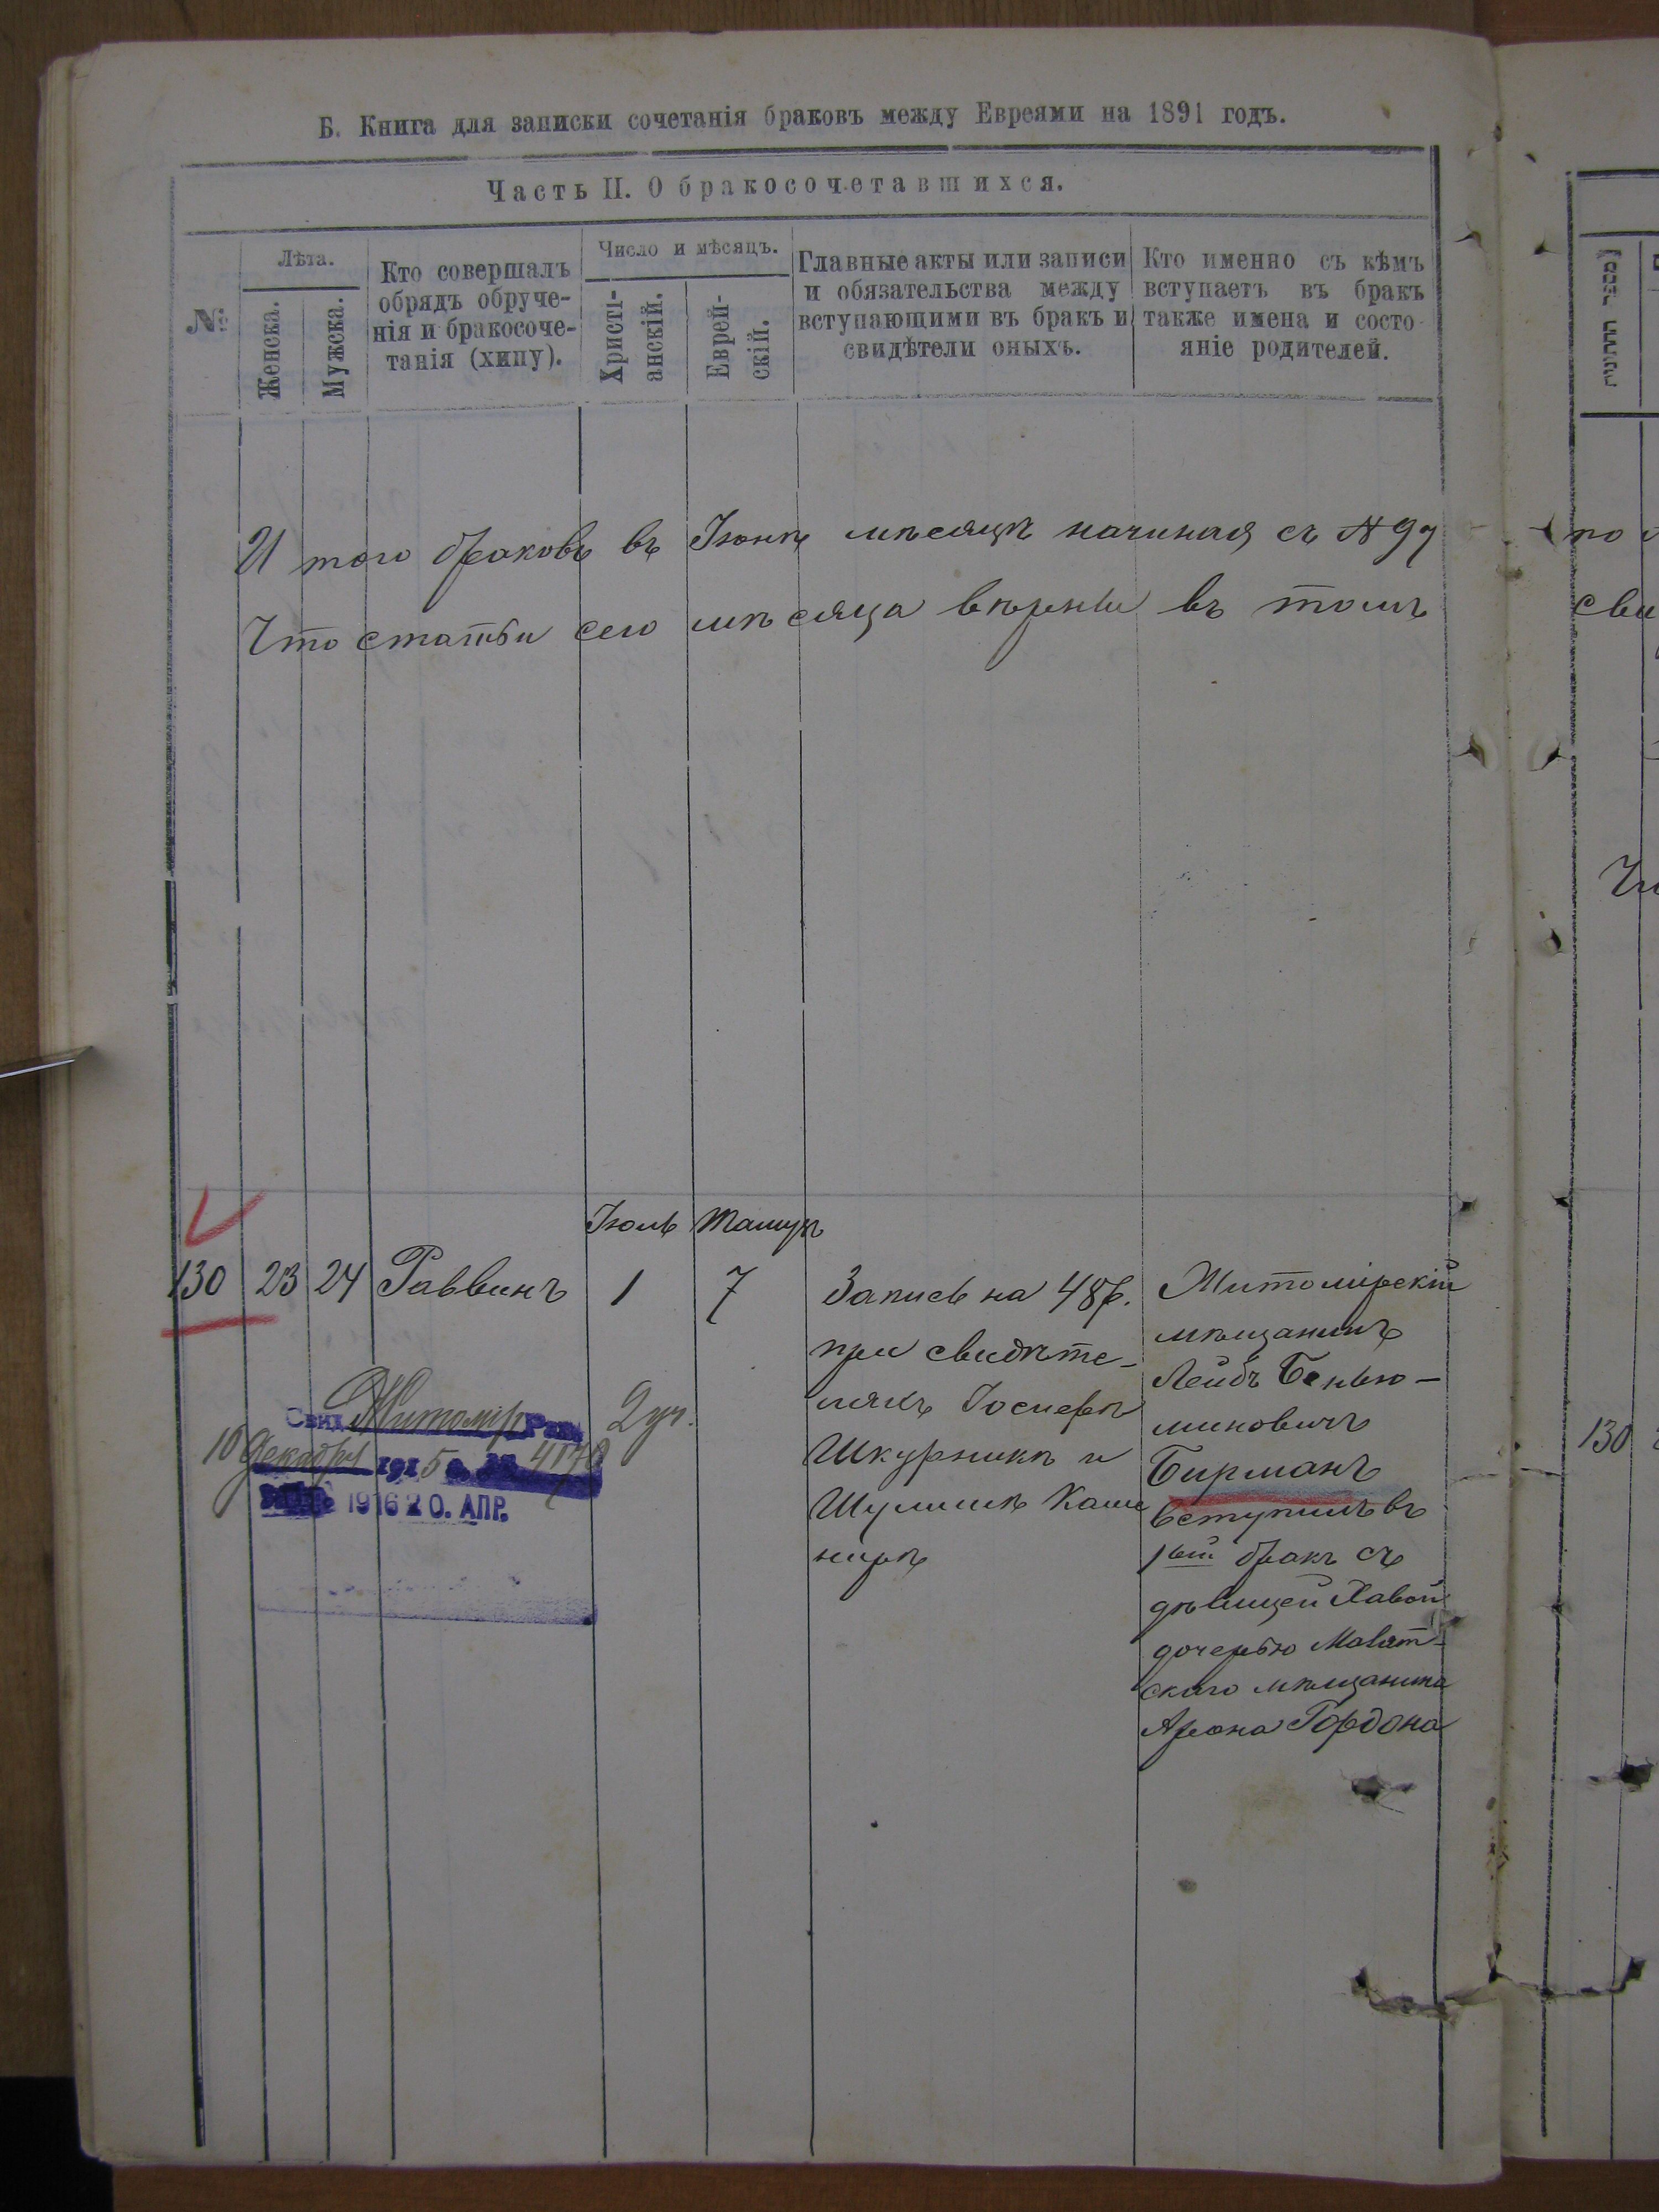 Б. Книга для записки сочетанія браковъ между Евреями на 1891 годъ.
Часть II. О бракосочетавшихся.
№
Лѣта.
Женска.
Мужска.
Кто совершалъ
обрядъ обруче-
нія и бракосоче-
танія (хипу).
Число и мѣсяцъ.
Христі-
анскій.
Еврей-
скій.
Главные акты или записи
и обязательства между
вступающими въ бракъ и
свидѣтели оныхъ.
Кто именно съ кѣмъ
вступаетъ въ бракъ
также имена и состо-
яніе родителей.
И того браковъ въ Іюнѣ мѣсяцѣ начиная съ № 99
Что статьи сего мѣсяца вѣрны въ томъ
Іюль Тамузъ
130 23 24 Раввинъ 1 7
Запись на 48 р.
при свидѣте-
ляхъ Іосифѣ
Шкурникѣ и
Шулимѣ Каше
нирѣ
Житомірскій
мѣщанинъ
Лейбъ Бенью-
миновичъ
Бирманъ
вступилъ въ
1ый бракъ съ
дѣвицей Хавой
дочерью Малят-
скаго мѣщанина
Арона Гордона
Свид. Житомір Рав.
10 Декабря 1915 г. № 4170
1916 20. АПР.
מספר החתונות
по
сви
130